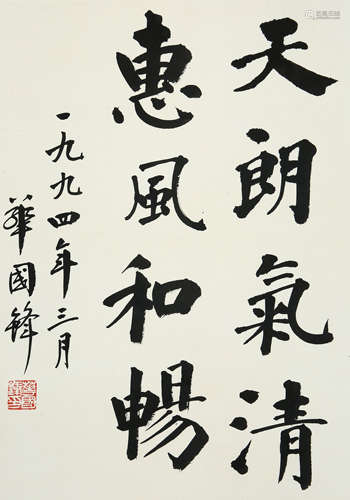 天朗氣清
惠風和暢
一九九四年三月
華國鋒